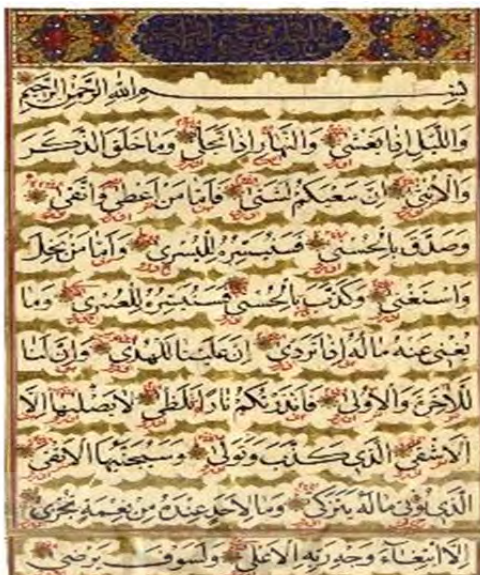 بسم الله الرحمن الرحيم
وَاللَّيْلِ إِذَا يَغْشَىٰ وَالنَّهَارِ إِذَا تَجَلَّىٰ وَمَا خَلَقَ الذَّكَرَ
وَالْأُنْثَىٰ إِنَّ سَعْيَكُمْ لَشَتَّىٰ فَأَمَّا مَنْ أَعْطَىٰ وَاتَّقَىٰ
وَصَدَّقَ بِالْحُسْنَىٰ فَسَنُيَسِّرُهُ لِلْيُسْرَىٰ وَأَمَّا مَنْ بَخِلَ
وَاسْتَغْنَىٰ وَكَذَّبَ بِالْحُسْنَىٰ فَسَنُيَسِّرُهُ لِلْعُسْرَىٰ وَمَا
يُغْنِي عَنْهُ مَالُهُ إِذَا تَرَدَّىٰ إِنَّ عَلَيْنَا لَلْهُدَىٰ وَإِنَّ لَنَا
لَلْآخِرَةَ وَالْأُولَىٰ فَأَنْذَرْتُكُمْ نَارًا تَلَظَّىٰ لَا يَصْلَاهَا إِلَّا
الْأَشْقَى الَّذِي كَذَّبَ وَتَوَلَّىٰ وَسَيُجَنَّبُهَا الْأَتْقَى
الَّذِي يُؤْتِي مَالَهُ يَتَزَكَّىٰ وَمَا لِأَحَدٍ عِنْدَهُ مِنْ نِعْمَةٍ تُجْزَىٰ
إِلَّا ابْتِغَاءَ وَجْهِ رَبِّهِ الْأَعْلَىٰ وَلَسَوْفَ يَرْضَىٰ